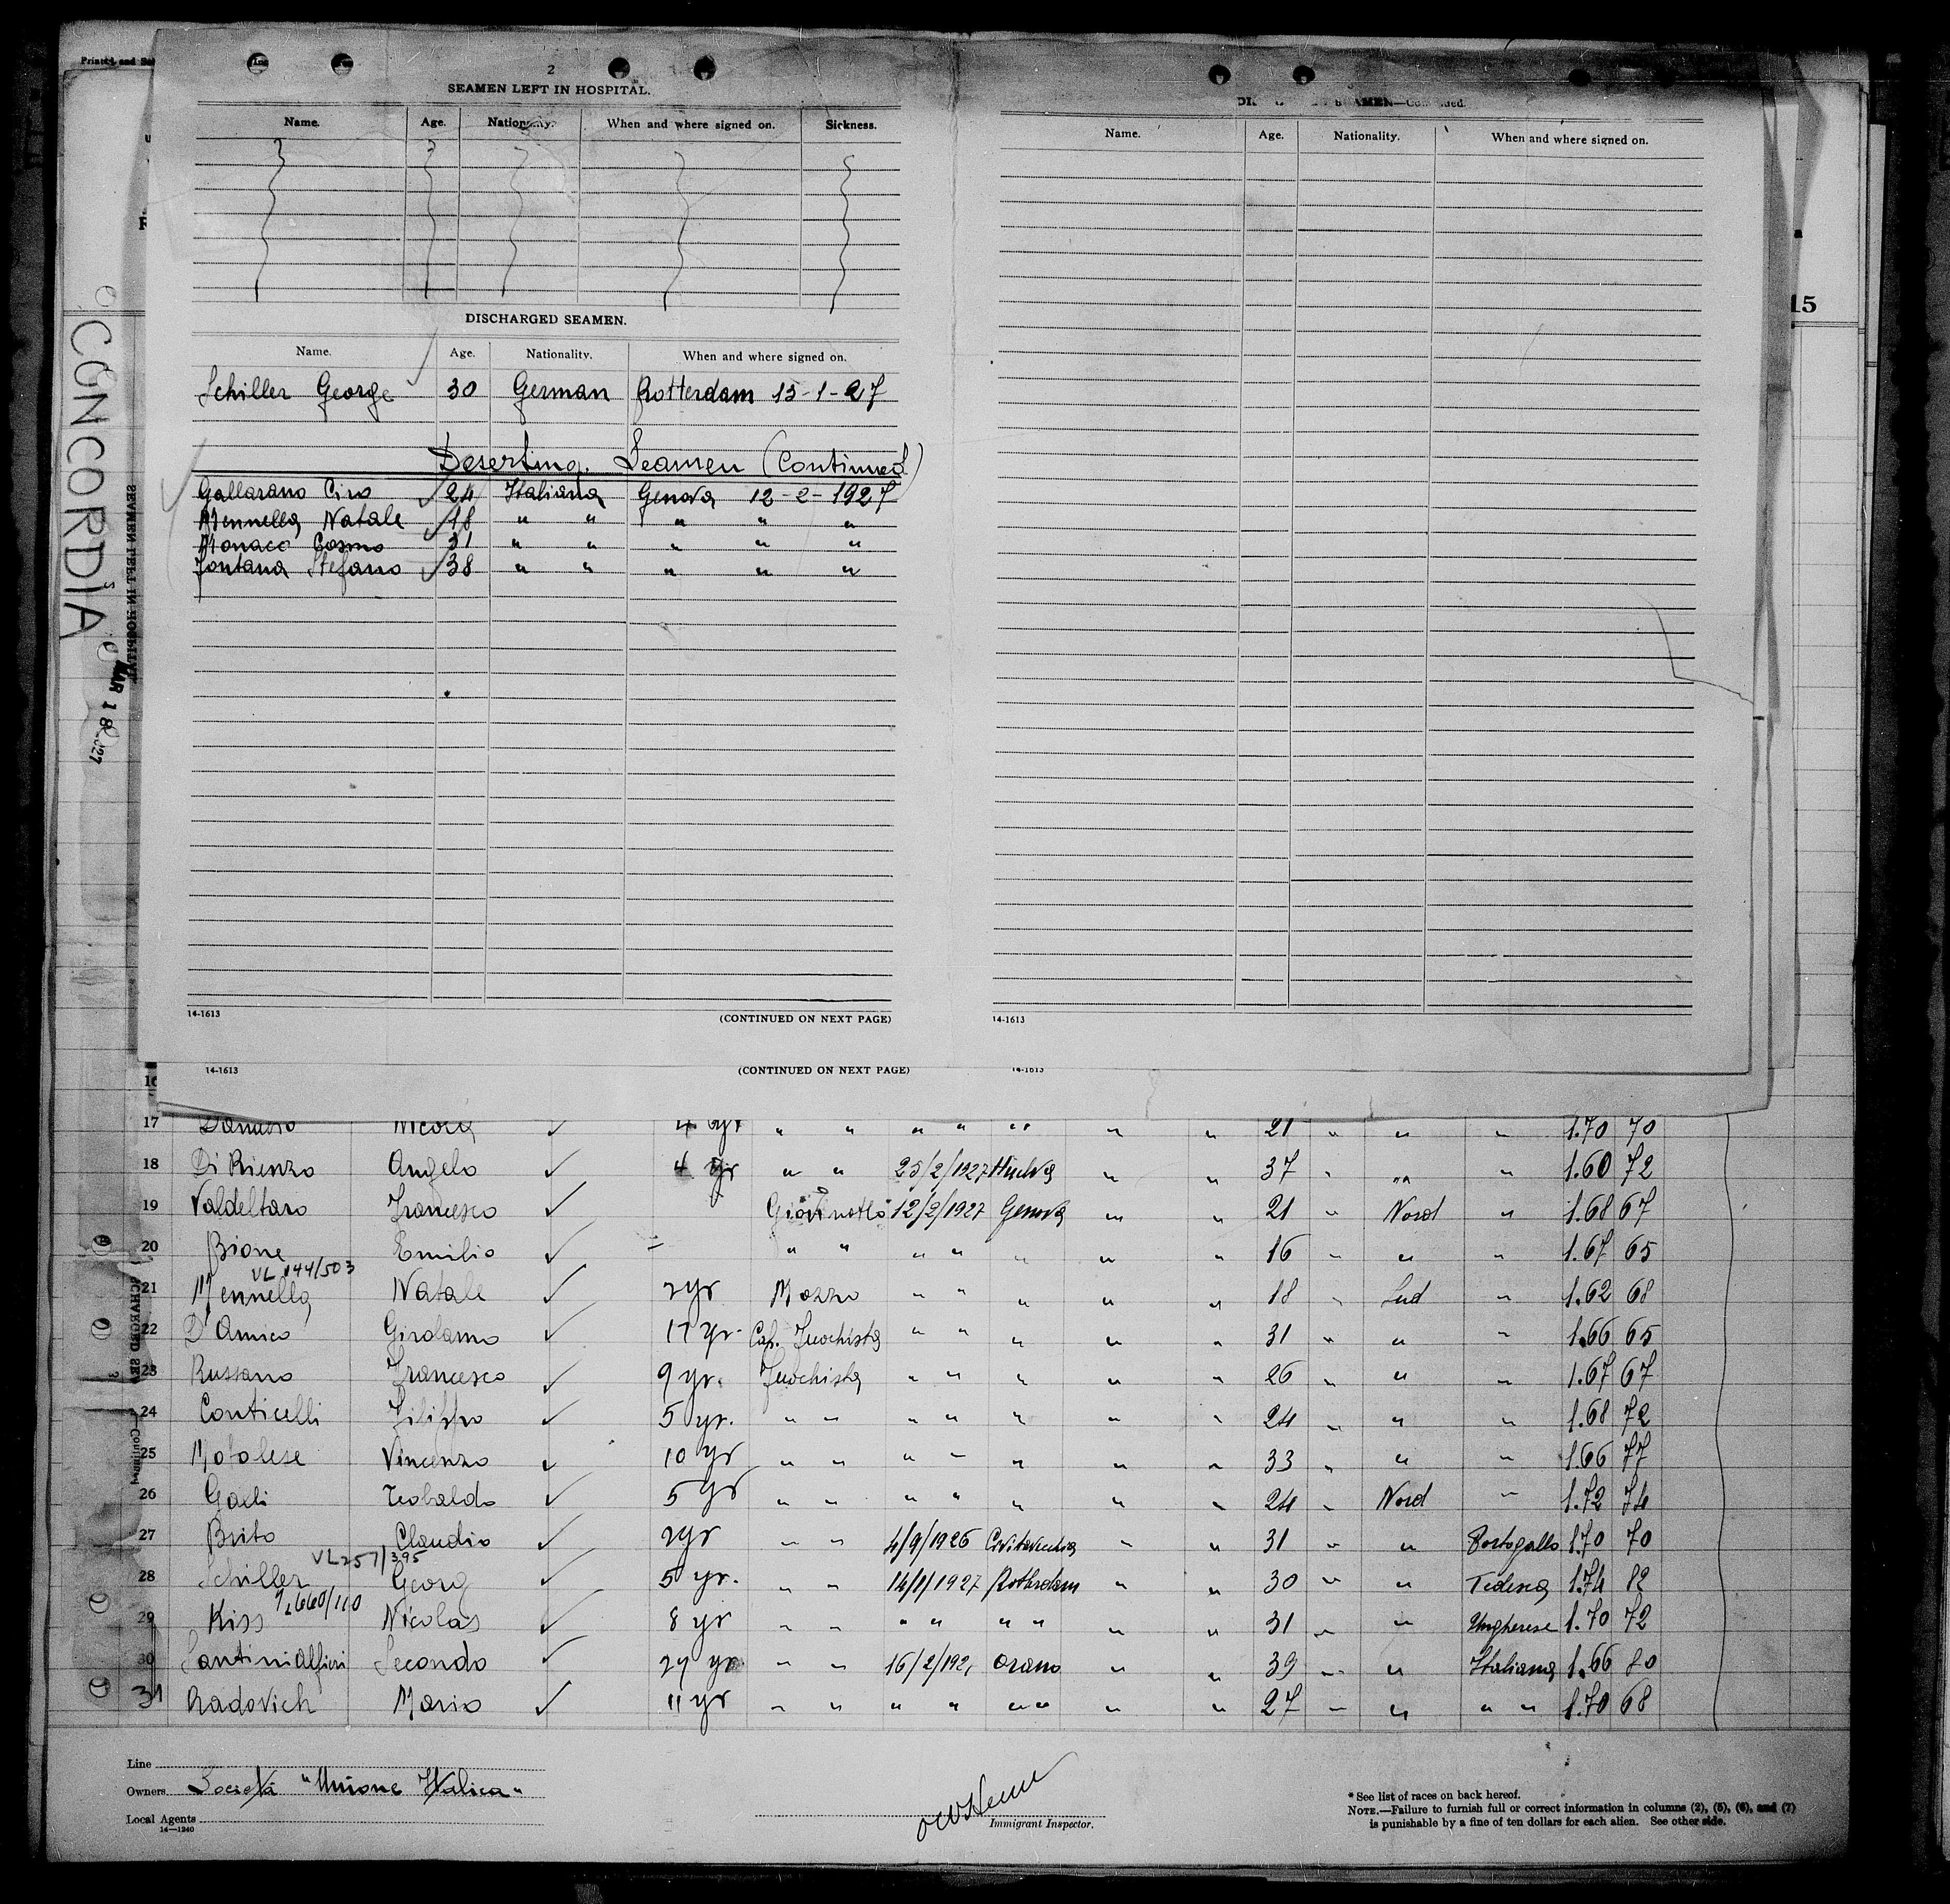 2
SEAMEN LEFT IN HOSPITAL.
Name. Age. Nationality. When and where signed on. Sickness.
DISCHARGED SEAMEN.
Name. Age. Nationality. When and where signed on.
Schiller George 30 German Rotterdam 15-1-27
Deserting Seamen (Continued)
Gallarano Ciro 24 Italiana Genova 12-2-1927
Mennella Natale 18 " " " " "
Monaco Cosmo 31 " " " " "
Fontana Stefano 38 " " " " "
14-1613 (CONTINUED ON NEXT PAGE)
Name. Age. Nationality. When and where signed on.
14-1613
14-1613 (CONTINUED ON NEXT PAGE) 14-1613
15
CONCORDIA
MAR 18 1927
SEAMEN LEFT IN HOSPITAL
17 4 yr " " " " " " " 21 " " " 1.70 70
18 Di Rienzo Angelo 4 yr " " 25/2/1927 Huelva " " 37 " " " 1.60 72
19 Valdeltaro Francesco Giovinotto 12/2/1927 Genova " " 21 " Nord " 1.68 67
20 Bione Emilio " " " " " " " 16 " " " 1.67 65
VL 144/503
21 Mennella Natale 2yr Mozzo " " " " " 18 " Sud " 1.62 68
22 D'Amico Girolamo 17 yr. Cap. Fuochista " " " " " 31 " " " 1.66 65
23 Russano Francesco 9 yr. Fuochista " " " " " 26 " " " 1.67 67
24 Conticelli Filippo 5 yr. " " " " " " " 24 " " " 1.68 72
25 Motolese Vincenzo 10 yr " " " " " " " 33 " " " 1.66 77
26 Galli Teobaldo 5 yr " " " " " " " 24 " Nord " 1.72 74
27 Brito Claudio 2yr " " 4/9/1926 Civitavecchia " " 31 " " Portogallo 1.70 70
VL 257/395
28 Schiller Georg 5 yr. " " 14/1/1927 Rotterdam " " 30 " " Tedesca 1.74 82
660/110
29 Kiss Nicolas 8 yr " " " " " " " " 31 " " Ungherese 1.70 72
30 Santini Alfieri Secondo 24 yr " " 16/2/192 Orano " " 39 " " Italiana 1.66 80
31 Radovich Mario 11 yr " " " " " " " " 27 " " " " 1.70 68
Line
Owners Società "Unione Italica"
Local Agents
14—1240
Immigrant Inspector.
* See list of races on back hereof.
NOTE.—Failure to furnish full or correct information in columns (2), (5), (6), and (7)
is punishable by a fine of ten dollars for each alien. See other side.